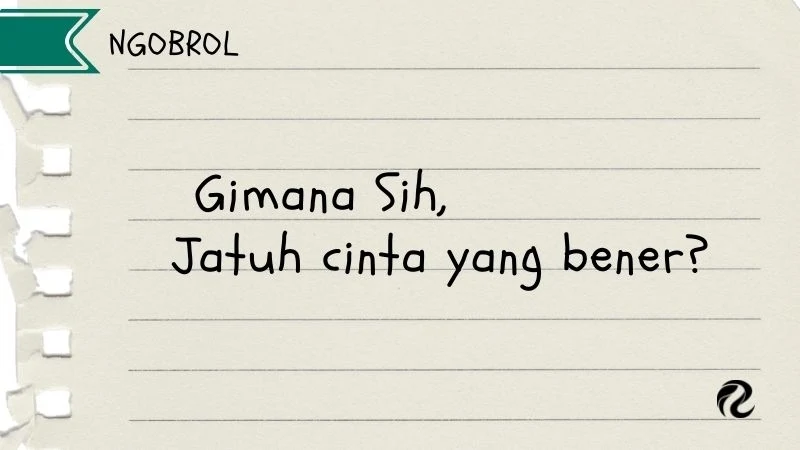 NGOBROL
Gimana Sih,
Jatuh cinta yang bener?